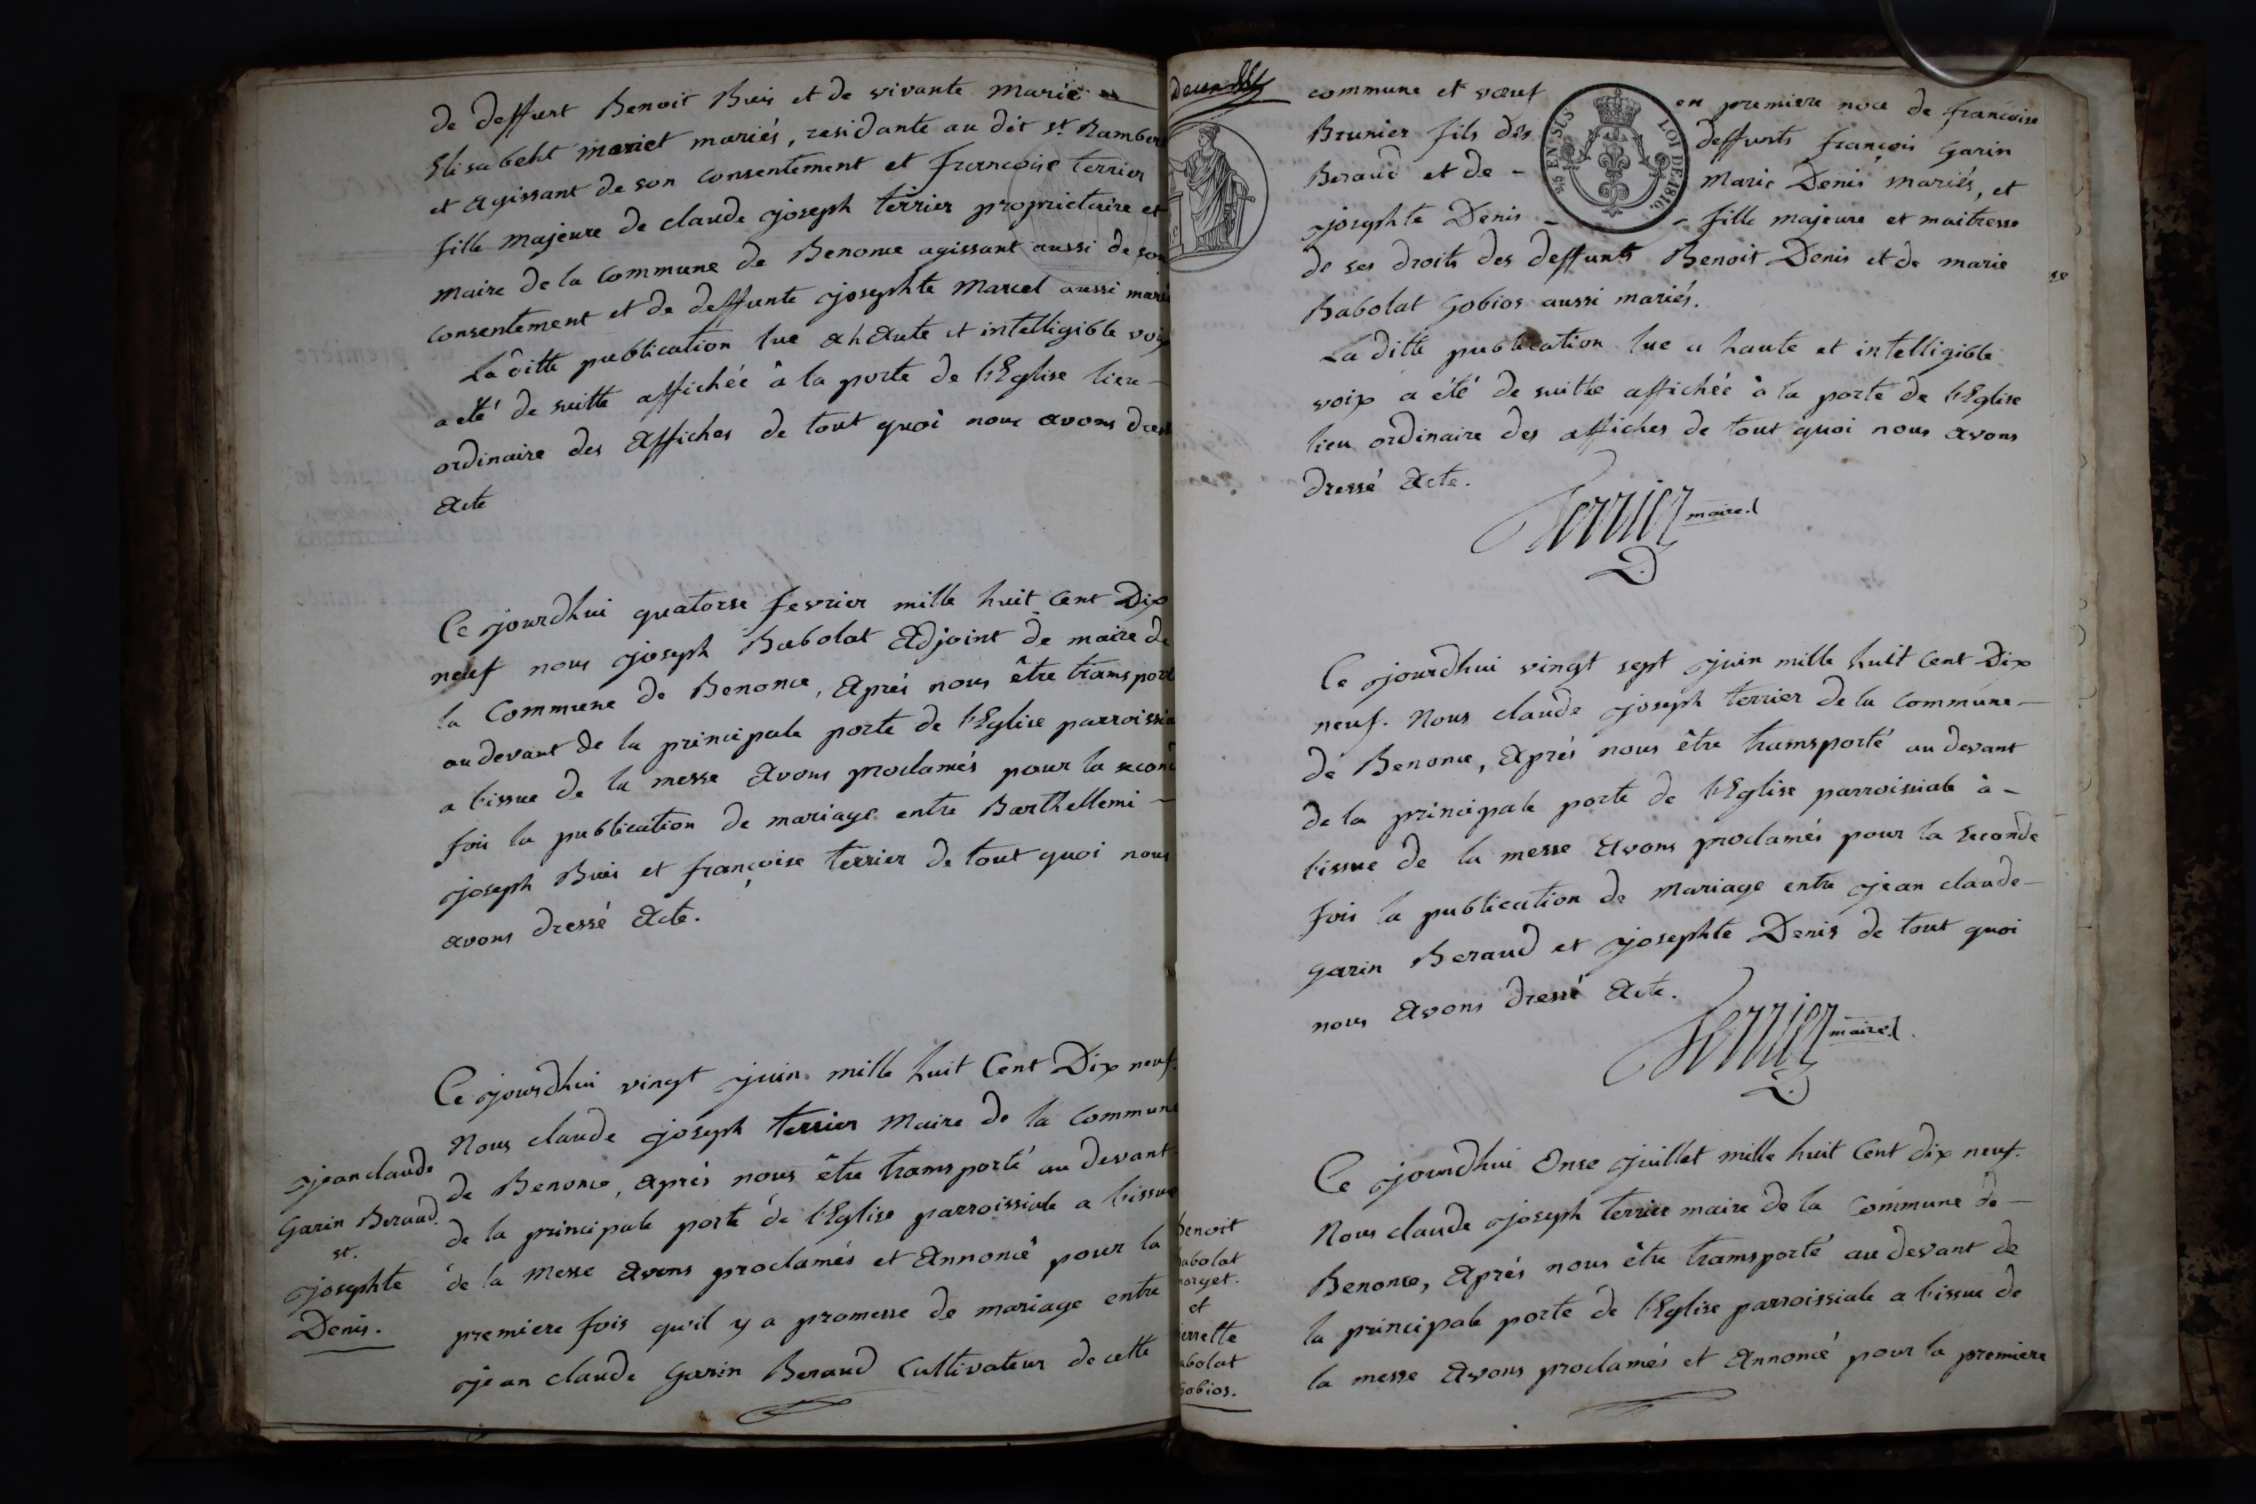 de deffunt Benoit Buis et de vivante Marie
Elisabeht Mariet mariés, residante au dit St. Rambert
et agissant de son consentement et francoise terrier
fille majeure de claude joseph terrier proprietaire et
maire de la Commune de Benonce agissant aussi de son
consentement et de deffunte josephte Marcel aussi mariés
La ditte publication lue a haute et intelligible voix
a été de suitte affichée à la porte de l'Eglise lieu
ordinaire des affiches de tout quoi nous avons dressé
acte
Ce jourdhui quatorse fevrier mille huit cent Dix
neuf nous joseph Babolat adjoint de maire de
la Commune de Benonce, après nous être transporté
au devant de la principale porte de l'Eglise parroissiale
a l'issue de la messe avons proclamés pour la seconde
fois la publication de mariage entre Barthellemi
joseph Buis et françoise terrier de tout quoi nous
avons dressé acte.
jean claude
Garin Beraud.
et.
josephte
Denis.
Ce jourdhui vingt juin mille huit Cent Dix neuf.
Nous claude joseph terrier Maire de la Commune
de Benonce, après nous être transporté au devant
de la principale porte de l'Eglise parroissiale a l'issue
de la Messe avons proclamés et annoncé pour la
premiere fois qu'il y a promesse de mariage entre
jean claude Garin Beraud Cultivateur de cette
commune et vœuf en premiere noce de francoise
Brunier fils des deffunts françois Garin
Beraud et de Marie Denis mariés, et
josephte Denis fille majeure et maitresse
de ses droits des deffunts Benoit Denis et de marie
Babolat Gobios aussi mariés.
LOI DE 1816.
La ditte publication lue a haute et intelligible
voix a été de suitte affichée à la porte de l'Eglise
lieu ordinaire des affiches de tout quoi nous avons
dressé acte.
Terrier maire
Ce jourdhui vingt sept juin mille huit cent Dix
neuf. Nous claude joseph terrier de la commune
de Benonce, après nous être transporté au devant
de la principale porte de l'Eglise parroissiale à
l'issue de la messe avons proclamés pour la seconde
fois la publication de Mariage entre jean claude
garin Beraud et josephte Denis de tout quoi
nous avons dressé acte.
Terrier maire
Benoit
Babolat
et
Pierrette
Babolat
Gobios.
Ce jourdhui Onse juillet mille huit Cent dix neuf.
Nous claude joseph terrier maire de la Commune de
Benonce, après nous être transporté au devant de
la principale porte de l'Eglise parroissiale a l'issue de
la messe avons proclamés et annoncé pour la premiere